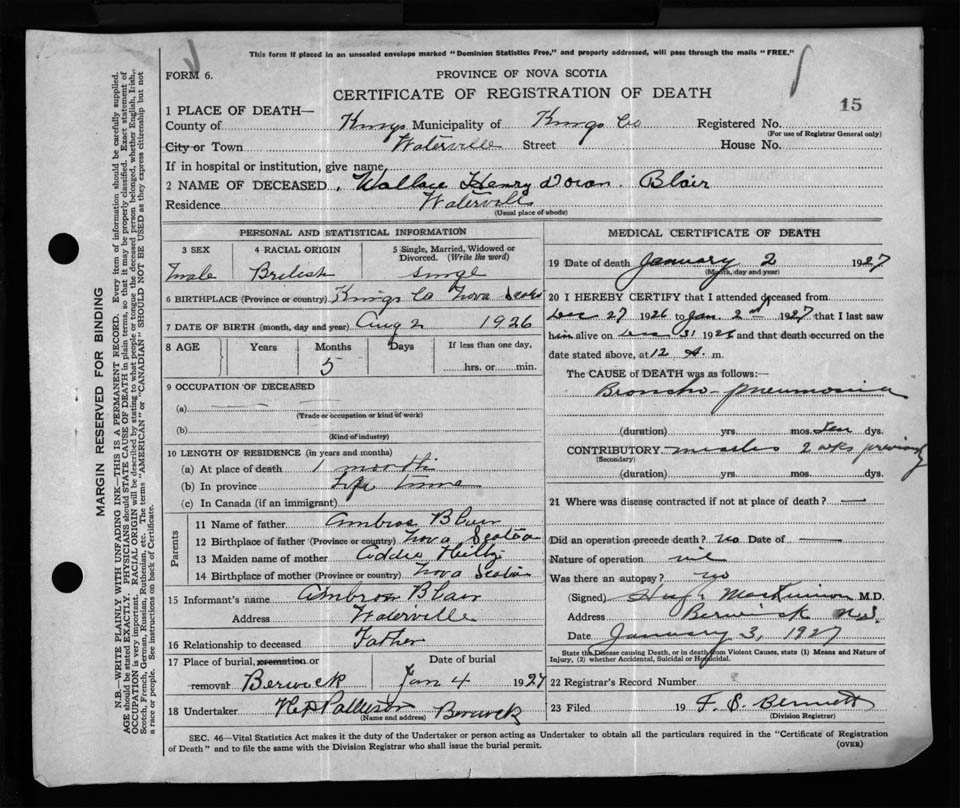 This form if placed in an unsealed envelope marked "Dominion Statistics Free," and properly addressed, will pass through the mails "FREE."
FORM 6.
PROVINCE OF NOVA SCOTIA
CERTIFICATE OF REGISTRATION OF DEATH
15
1 PLACE OF DEATH—
County of Kings Municipality of Kings Co Registered No.
(For use of Registrar General only)
City or Town Waterville Street House No.
If in hospital or institution, give name
2 NAME OF DECEASED Wallace Henry Doran Blair
Residence Waterville
(Usual place of abode)
PERSONAL AND STATISTICAL INFORMATION
3 SEX 4 RACIAL ORIGIN 5 Single, Married, Widowed or Divorced. (Write the word)
male British single
6 BIRTHPLACE (Province or country) Kings Co Nova Scotia
7 DATE OF BIRTH (month, day and year) Aug 2 1926
8 AGE Years Months Days If less than one day,
5 hrs. or min.
9 OCCUPATION OF DECEASED
(a)
(Trade or occupation or kind of work)
(b)
(Kind of industry)
10 LENGTH OF RESIDENCE (in years and months)
(a) At place of death 1 month
(b) In province Life time
(c) In Canada (if an immigrant)
Parents
11 Name of father Ambros Blair
12 Birthplace of father (Province or country) Nova Scotia
13 Maiden name of mother Addie
14 Birthplace of mother (Province or country) Nova Scotia
15 Informant's name Ambros Blair
Address Waterville
16 Relationship to deceased Father
17 Place of burial, cremation or Date of burial
removal Berwick Jan 4 1927
18 Undertaker Berwick
(Name and address)
MEDICAL CERTIFICATE OF DEATH
19 Date of death January 2 1927
(Month, day and year)
20 I HEREBY CERTIFY that I attended deceased from
Dec 27 1926 to Jan. 2nd 1927 that I last saw
him alive on Dec 31 1926 and that death occurred on the
date stated above, at 12 m.
The CAUSE of DEATH was as follows:—
Broncho-pneumonia
(duration) yrs. mos. ten dys.
CONTRIBUTORY measles 2 wks previously
(Secondary)
(duration) yrs. mos. dys.
21 Where was disease contracted if not at place of death? —
Did an operation precede death? no Date of —
Nature of operation nil
Was there an autopsy? no
(Signed) Hugh MacKinnon M.D.
Address Berwick N.S.
Date January 3, 1927
State the Disease causing Death, or in death from Violent Causes, state (1) Means and Nature of
Injury, (2) whether Accidental, Suicidal or Homicidal.
22 Registrar's Record Number
23 Filed 19 F. S. Bennett
(Division Registrar)
SEC. 46—Vital Statistics Act makes it the duty of the Undertaker or person acting as Undertaker to obtain all the particulars required in the "Certificate of Registration
of Death" and to file the same with the Division Registrar who shall issue the burial permit.
(OVER)
MARGIN RESERVED FOR BINDING
N.B.—WRITE PLAINLY WITH UNFADING INK—THIS IS A PERMANENT RECORD. Every item of information should be carefully supplied.
AGE should be stated EXACTLY. PHYSICIANS should STATE CAUSE OF DEATH in plain terms, so that it may be properly classified. Exact statement of
OCCUPATION is very important. RACIAL ORIGIN will be described by stating to what people or tongue the deceased person belonged, whether English, Irish,
Scotch, French, German, Russian, Ruthenian, etc. The terms "AMERICAN" or "CANADIAN" SHOULD NOT BE USED as they express citizenship but not
a race or people. See instructions on back of Certificate.